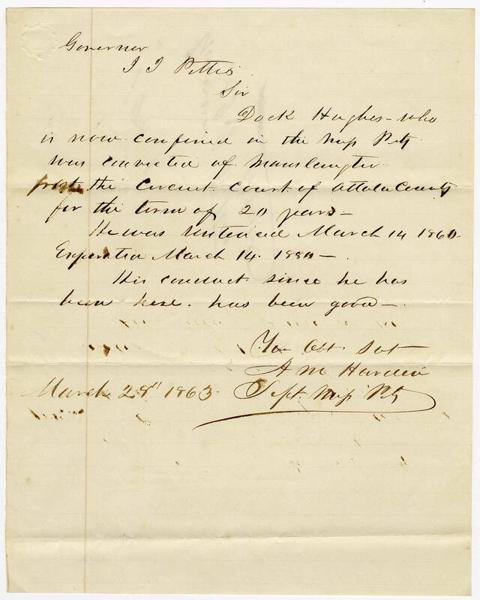 Governor
J J Pettus
Sir
Dock Hughes - who
is now confined in the Miss Pety
was convicted of Manslaughter
from the Circuit Court of Attala County
for the term of 20 years -
He was sentenced March 14 1860.
Expiration March 14. 1880 -
His conduct since he has
been here. has been good -
Your Obt Svt
A M Hardin
March 28" 1863. Supt. Miss Pty